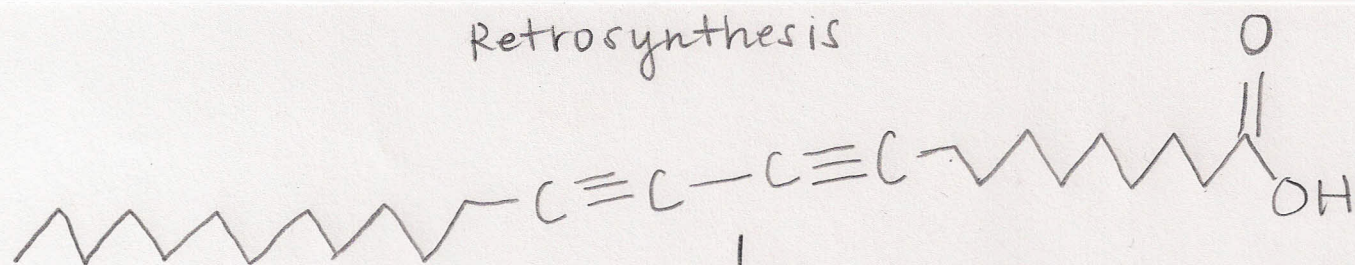 Retrosynthesis
O
C≡C—C≡C
OH